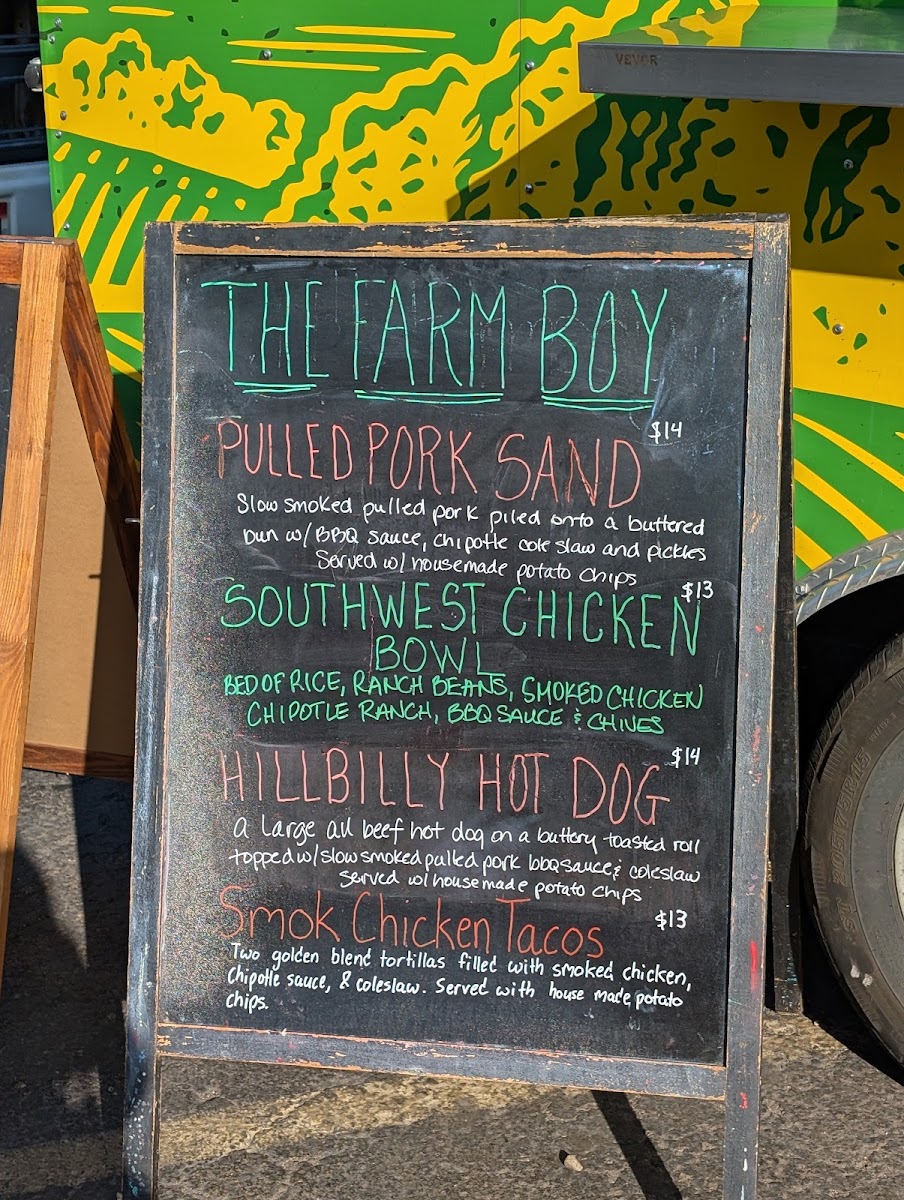 VEVOR
THE FARM BOY
$14
PULLED PORK SAND
Slow smoked pulled pork piled onto a buttered
bun w/ BBQ sauce, chipotle cole slaw and pickles
Served w/ housemade potato chips
$13
SOUTHWEST CHICKEN
BOWL
BED OF RICE, RANCH BEANS, SMOKED CHICKEN
CHIPOTLE RANCH, BBQ SAUCE & CHIVES
$14
HILLBILLY HOT DOG
a large all beef hot dog on a buttery toasted roll
topped w/ slow smoked pulled pork bbq sauce & coleslaw
served w/ housemade potato chips
$13
Smok Chicken Tacos
Two golden blend tortillas filled with smoked chicken,
chipotle sauce, & coleslaw. Served with house made potato
chips.